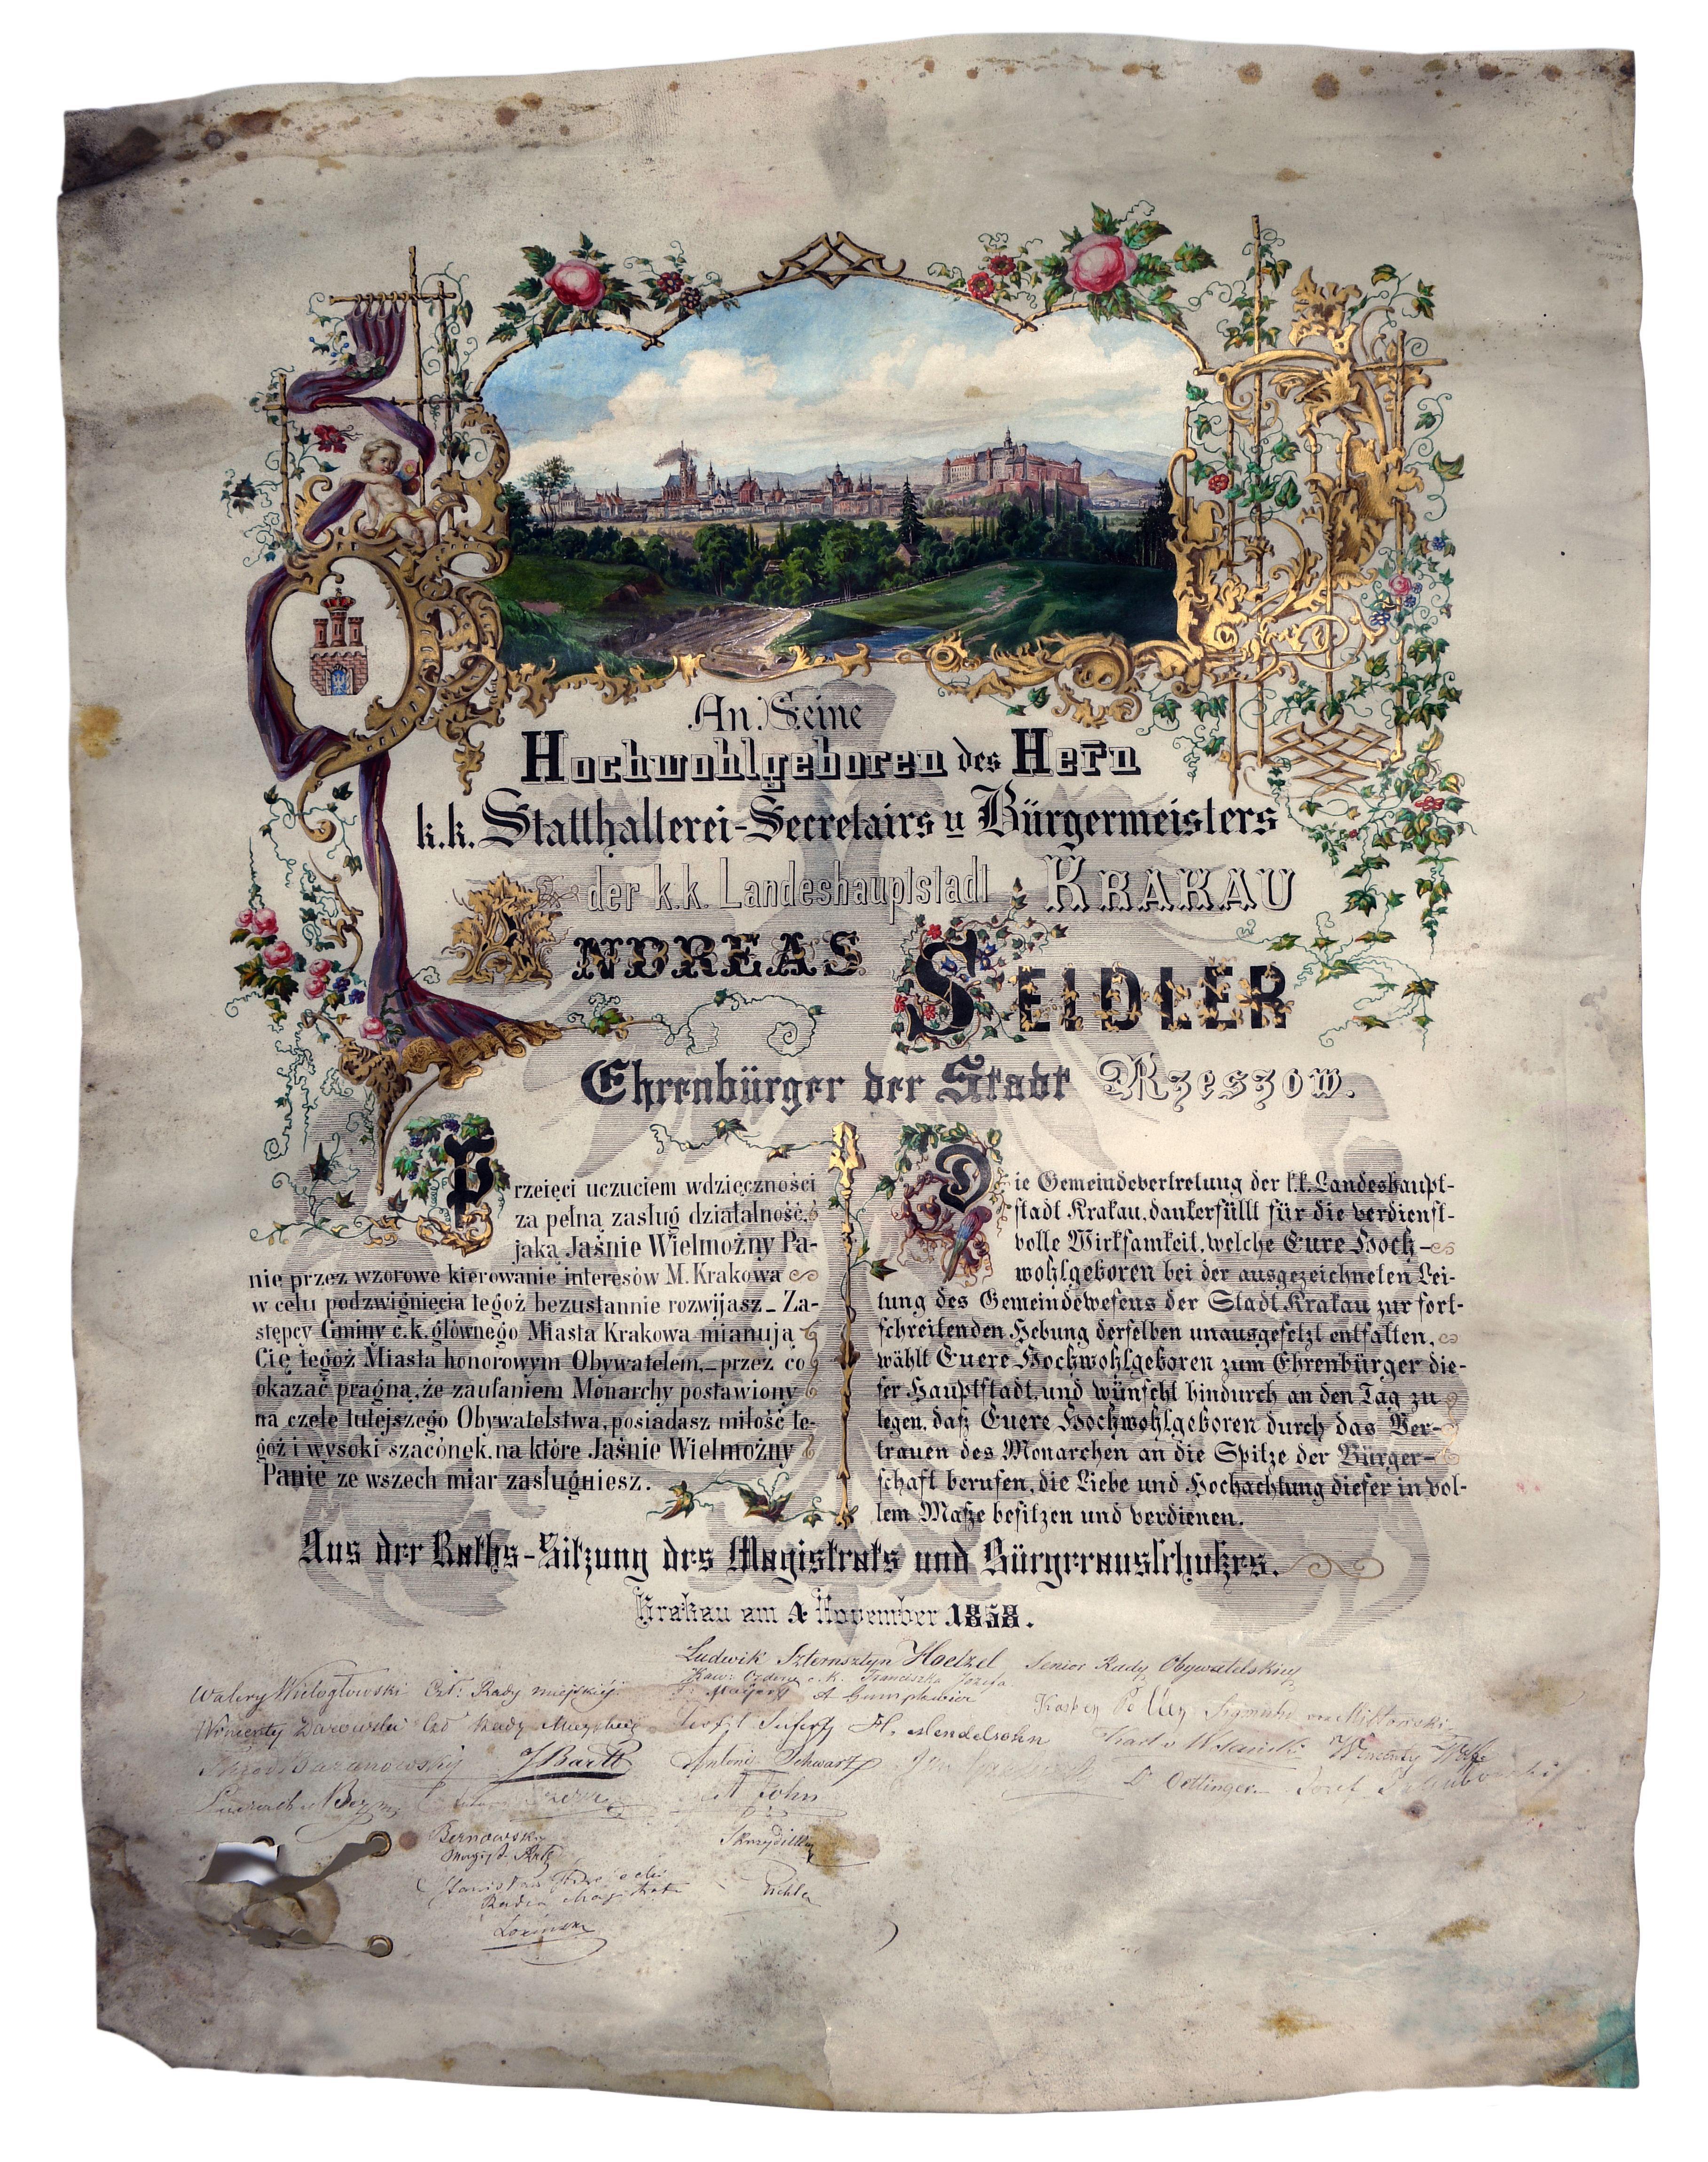 An Seine
Hochwohlgeboren des Herrn
k.k. Statthalterei-Secretairs u Bürgermeisters
der k.k. Landeshauptstadt KRAKAU
ANDREAS SEIDLER
Ehrenbürger der Stadt Rzeszow.
Przeięci uczuciem wdzięczności
za pełną zasług działalność,
jaką Jaśnie Wielmożny Pa-
nie przez wzorowe kierowanie interesów M. Krakowa
w celu podzwignięcia tegoż bezustannie rozwijasz_ Za-
stępcy Gminy c.k. głównego Miasta Krakowa mianują
Cię tegoż Miasta honorowym Obywatelem,_ przez co
okazać pragną, że zaufaniem Monarchy postawiony
na czele tutejszego Obywatelstwa, posiadasz miłość te-
goż i wysoki szacónek, na które Jaśnie Wielmożny
Panie ze wszech miar zasługuiesz.
Die Gemeindevertretung der k.k. Landeshaupt-
stadt Krakau, dankerfüllt für die verdienst-
volle Wirksamkeit, welche Eure Hoch-
wohlgeboren bei der ausgezeichneten Lei-
tung des Gemeindewesens der Stadt Krakau zur fort-
schreitenden Hebung derselben unausgesetzt entfalten,
wählt Euere Hochwohlgeboren zum Ehrenbürger die-
ser Hauptstadt, und wünscht hindurch an den Tag zu
legen, daß Euere Hochwohlgeboren durch das Ver-
trauen des Monarchen an die Spitze der Bürger-
schaft berufen, die Liebe und Hochachtung dieser in vol-
lem Maße besitzen und verdienen.
Aus der Raths-Sitzung des Magistrats und Bürgerausschußes.
Krakau am 4 November 1858.
Ludwik Szternsztyn Hoelzel Senior Rady Obywatelskiey
Kaw: Orderu c. K. Franciszka Józefa
Walery Wielogłowski Czł: Rady miejskiej
Wincenty Darowski Rady
H. Mendelsohn
J Barth
Antoni Schwarz
Wincenty Wolff
Dr Oettinger
Józef Jakubowski
A John